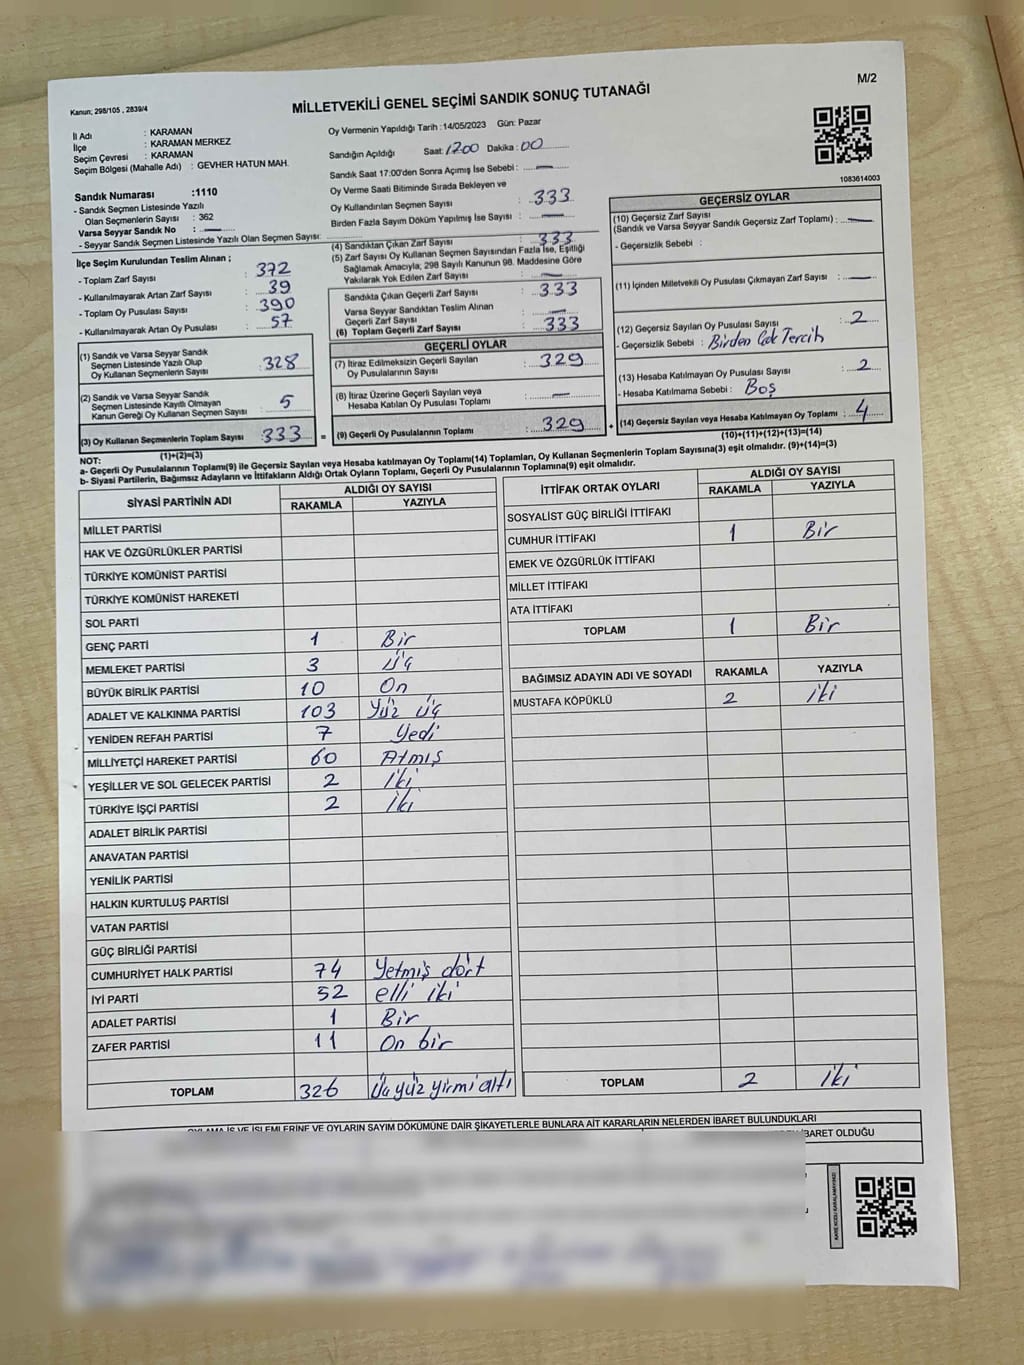 M/2
Kanun; 298/105 , 2839/4
MİLLETVEKİLİ GENEL SEÇİMİ SANDIK SONUÇ TUTANAĞI
İl Adı : KARAMAN
İlçe : KARAMAN MERKEZ
Seçim Çevresi : KARAMAN
Seçim Bölgesi (Mahalle Adı) : GEVHER HATUN MAH.
Sandık Numarası :1110
- Sandık Seçmen Listesinde Yazılı
Olan Seçmenlerin Sayısı : 362
Varsa Seyyar Sandık No : —
- Seyyar Sandık Seçmen Listesinde Yazılı Olan Seçmen Sayısı:
İlçe Seçim Kurulundan Teslim Alınan ;
- Toplam Zarf Sayısı : 372
- Kullanılmayarak Artan Zarf Sayısı : 39
- Toplam Oy Pusulası Sayısı : 390
- Kullanılmayarak Artan Oy Pusulası : 57
(1) Sandık ve Varsa Seyyar Sandık
Seçmen Listesinde Yazılı Olup
Oy Kullanan Seçmenlerin Sayısı : 328
(2) Sandık ve Varsa Seyyar Sandık
Seçmen Listesinde Kayıtlı Olmayan
Kanun Gereği Oy Kullanan Seçmen Sayısı : 5
(3) Oy Kullanan Seçmenlerin Toplam Sayısı : 333
(1)+(2)=(3)
Oy Vermenin Yapıldığı Tarih :14/05/2023 Gün: Pazar
Sandığın Açıldığı Saat: 1700 Dakika : 00
Sandık Saat 17:00'den Sonra Açımış İse Sebebi : —
Oy Verme Saati Bitiminde Sırada Bekleyen ve
Oy Kullandırılan Seçmen Sayısı : 333
Birden Fazla Sayım Döküm Yapılmış İse Sayısı : —
(4) Sandıktan Çıkan Zarf Sayısı : 333
(5) Zarf Sayısı Oy Kullanan Seçmen Sayısından Fazla İse, Eşitliği
Sağlamak Amacıyla, 298 Sayılı Kanunun 98. Maddesine Göre
Yakılarak Yok Edilen Zarf Sayısı : —
Sandıkta Çıkan Geçerli Zarf Sayısı : 333
Varsa Seyyar Sandıktan Teslim Alınan
Geçerli Zarf Sayısı : —
(6) Toplam Geçerli Zarf Sayısı : 333
GEÇERLİ OYLAR
(7) İtiraz Edilmeksizin Geçerli Sayılan
Oy Pusulalarının Sayısı : 329
(8) İtiraz Üzerine Geçerli Sayılan veya
Hesaba Katılan Oy Pusulası Toplamı : —
= (9) Geçerli Oy Pusulalarının Toplamı : 329 +
1083614003
GEÇERSİZ OYLAR
(10) Geçersiz Zarf Sayısı
(Sandık ve Varsa Seyyar Sandık Geçersiz Zarf Toplamı) : —
- Geçersizlik Sebebi :
(11) İçinden Milletvekili Oy Pusulası Çıkmayan Zarf Sayısı : —
(12) Geçersiz Sayılan Oy Pusulası Sayısı : 2
- Geçersizlik Sebebi : Birden Çok Tercih
(13) Hesaba Katılmayan Oy Pusulası Sayısı : 2
- Hesaba Katılmama Sebebi : Boş
(14) Geçersiz Sayılan veya Hesaba Katılmayan Oy Toplamı : 4
(10)+(11)+(12)+(13)=(14)
NOT:
a- Geçerli Oy Pusulalarının Toplamı(9) ile Geçersiz Sayılan veya Hesaba katılmayan Oy Toplamı(14) Toplamları, Oy Kullanan Seçmenlerin Toplam Sayısına(3) eşit olmalıdır. (9)+(14)=(3)
b- Siyasi Partilerin, Bağımsız Adayların ve İttifakların Aldığı Ortak Oyların Toplamı, Geçerli Oy Pusulalarının Toplamına(9) eşit olmalıdır.
SİYASİ PARTİNİN ADI ALDIĞI OY SAYISI
RAKAMLA YAZIYLA
MİLLET PARTİSİ
HAK VE ÖZGÜRLÜKLER PARTİSİ
TÜRKİYE KOMÜNİST PARTİSİ
TÜRKİYE KOMÜNİST HAREKETİ
SOL PARTİ
GENÇ PARTİ 1 Bir
MEMLEKET PARTİSİ 3 Üç
BÜYÜK BİRLİK PARTİSİ 10 On
ADALET VE KALKINMA PARTİSİ 103 Yüz Üç
YENİDEN REFAH PARTİSİ 7 Yedi
MİLLİYETÇİ HAREKET PARTİSİ 60 Atmış
YEŞİLLER VE SOL GELECEK PARTİSİ 2 İki
TÜRKİYE İŞÇİ PARTİSİ 2 İki
ADALET BİRLİK PARTİSİ
ANAVATAN PARTİSİ
YENİLİK PARTİSİ
HALKIN KURTULUŞ PARTİSİ
VATAN PARTİSİ
GÜÇ BİRLİĞİ PARTİSİ
CUMHURİYET HALK PARTİSİ 74 Yetmiş dört
İYİ PARTİ 52 elli iki
ADALET PARTİSİ 1 Bir
ZAFER PARTİSİ 11 On bir
TOPLAM 326 Üçyüz yirmi altı
İTTİFAK ORTAK OYLARI ALDIĞI OY SAYISI
RAKAMLA YAZIYLA
SOSYALİST GÜÇ BİRLİĞİ İTTİFAKI
CUMHUR İTTİFAKI 1 Bir
EMEK VE ÖZGÜRLÜK İTTİFAKI
MİLLET İTTİFAKI
ATA İTTİFAKI
TOPLAM 1 Bir
BAĞIMSIZ ADAYIN ADI VE SOYADI RAKAMLA YAZIYLA
MUSTAFA KÖPÜKLÜ 2 İki
TOPLAM 2 İki
OYLAMA İŞ VE İŞLEMLERİNE VE OYLARIN SAYIM DÖKÜMÜNE DAİR ŞİKAYETLERLE BUNLARA AİT KARARLARIN NELERDEN İBARET BULUNDUKLARI
İBARET OLDUĞU